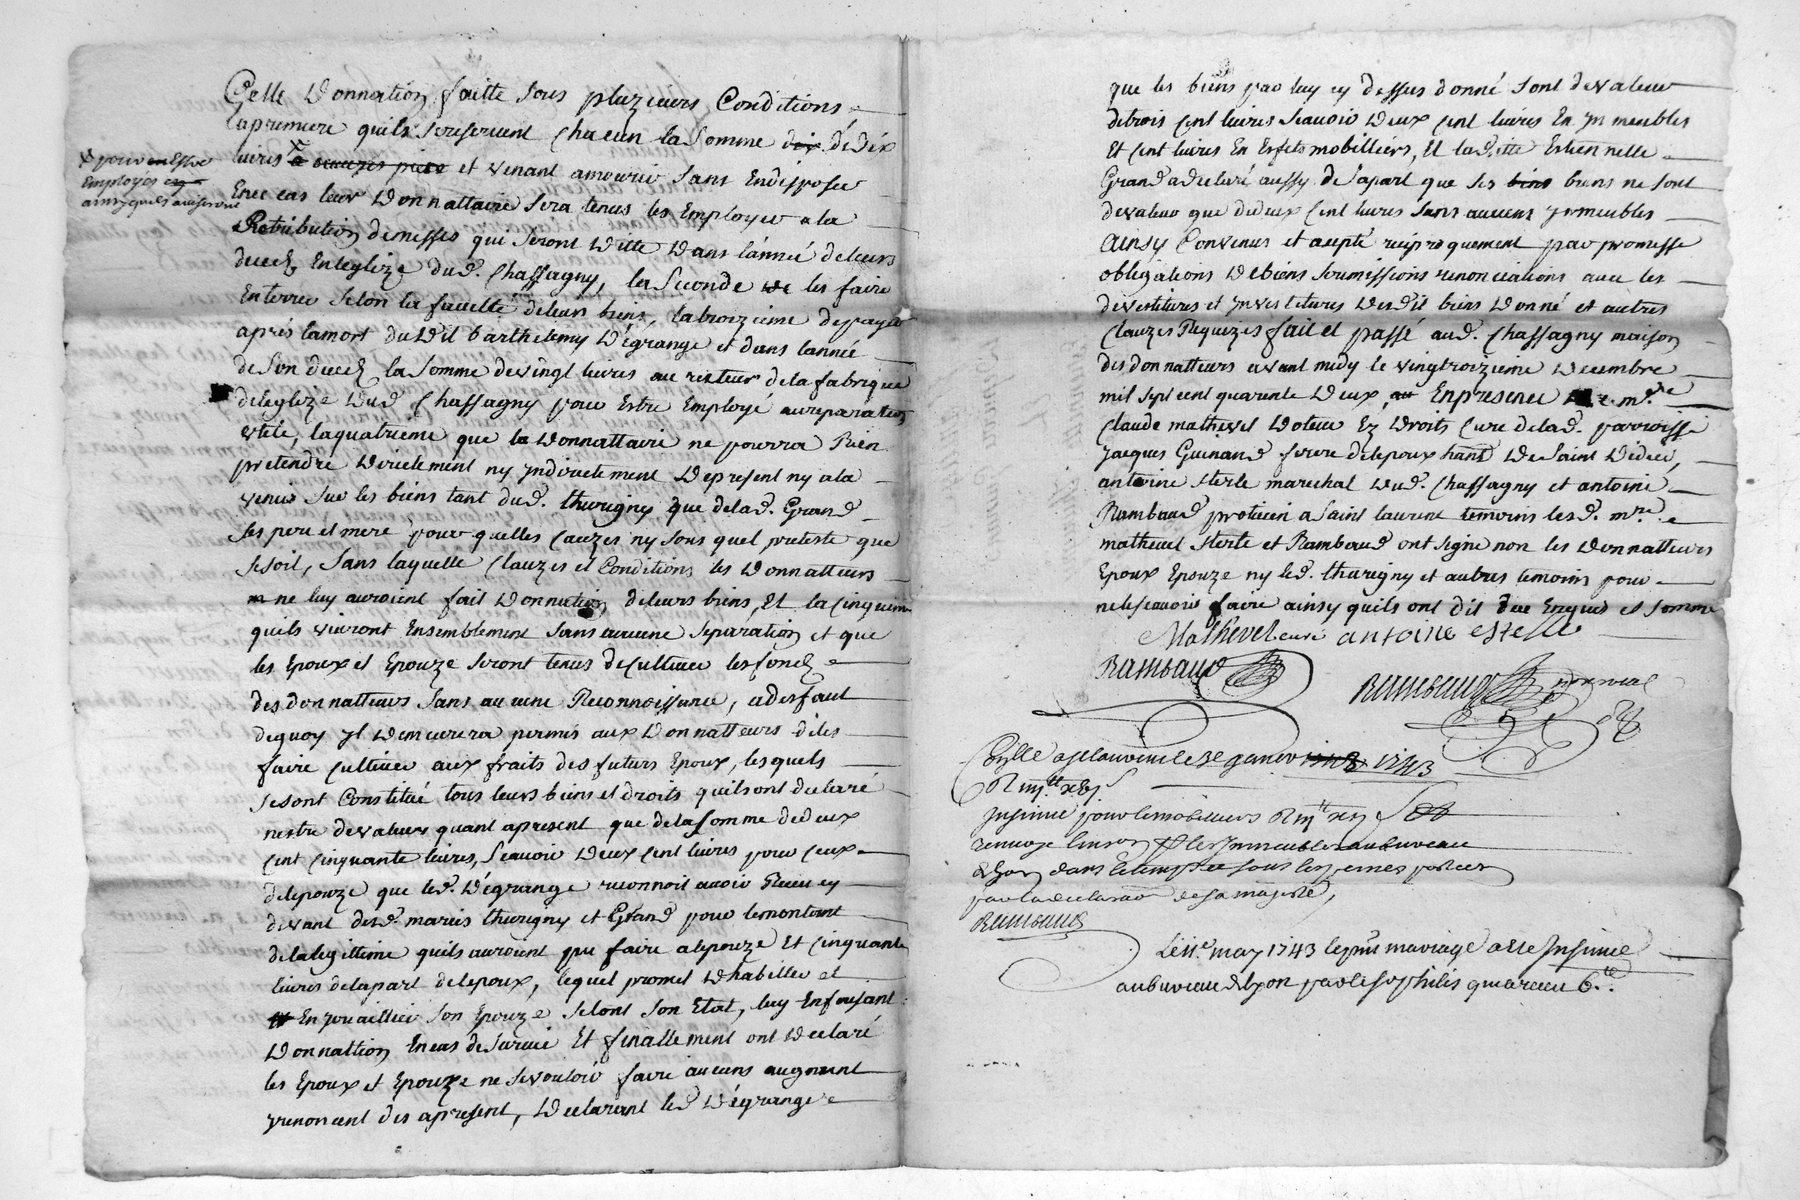 Celle Donnation faitte sous pluzieurs Conditions
la premiere quils se reservent Chacun la somme dix de dix
livres et venant a mourir sans En disposer
x pour Estre
Employés
ainsy quils aviseront
En ce cas leur Donnattaire sera tenus les Employer a la
Retribution de messes qui seront Ditte Dans lánneé de leurs
decez En leglize dud. Chassagny, la seconde de les faire
Enterrer selon la faculté de leurs biens, la troizieme de payer
aprés la mort du Dit barthelemy Dégrange et dans lannée
de son decez la somme de vingt livres au recteur de la fabrique
de leglize Dud. Chassagny pour Estre Employé au reparations
d'icelle, la quatrieme que la Donnattaire ne pourra Rien
pretendre Directement ny yndirectement De present ny a la
venir sur les biens tant dud. thurigny que de lad. Grand
ses pere et mere pour quelles Cauzes ny sous quel preteste que
se soit, sans laquelle Clauzes et Conditions les Donnatteurs
ne luy auroient fait Donnation de leurs biens, Et la Cinquieme
quils vivront Ensemblement sans aucune separation et que
les Epoux et Epouze seront tenus de Cultiver les fondz
des donnatteurs sans aucune Reconnoissance, a desfaut
de quoy yl Demeurera permis aux Donnatteurs de les
faire Cultiver aux fraits des futurs Epoux, les quels
se sont Constitué tous leurs biens et droits quils ont declaré
nestre de valeurs quant a present que de la somme de deux
Cent Cinquante livres, scavoir Deux Cent livres pour Ceux
de lepouze que led. Dégrange reconnoit avoir Receu cy
devant desd. mariés thurigny et Grand pour le montant
de la legittime quils auroient pu faire a lepouze Et Cinquante
livres de la part de lepoux, lequel promet Dhabiller et
Enjouailler son Epouze selont son Etat, luy En faisant
Donnattion En cas de survie Et finallement ont Declaré
les Epoux et Epouze ne se vouloir faire aucuns augment
y renoncent des a present, Declarant led. Dégrange
que les biens par luy cy dessus donné sont de valeur
de trois Cent livres scavoir Deux Cent livres En ymmeubles
Et Cent livres En Esfets mobilliers, Et lad. ette Estiennette
Grand a declaré aussy de sa part que ses biens biens ne sont
de valeur que de deux Cent livres sans aucuns ymmeubles
Ainsy Convenus et acepté reciproquement par promesse
obligations De biens soumissions renonciations avec les
devestitures et ynvestitures Desdit biens Donné et autres
Clauzes Requizes fait et passé aud. Chassagny maison
des donnatteurs avant midy le vingtroizieme Decembre
mil sept cent quarente Deux, En presence De mre
Claude mathevel Doteur Ez Droits Curé de lad. parroisse
Jacques Guinand frere de lepoux hant De saint Didier,
antoine sterle marechal Dud. Chassagny et antoine
Rambaud praticien a saint laurent temoins lesd. mre
mathevel sterle et Rambaud ont signé non les Donnatteurs
Epoux Epouze ny led. thurigny et autres temoins pour
ne le scavoir faire ainsy quils ont dit due Enquis et sommé
Mathevel curé antoine estelle
Rambaud
Rambaud nore roial
Collé a st laurent le 2e janvier 1743
R
Insinué pour le mobilliers R
renvoyé linson des Immeubles au bureau
de Lyon dans le temps et sous les peines portées
par la declaraon de sa majesté,
Rambaud
Le 11e may 1743 le pnt mariage a Eté Insinué
au bureau de Lyon par le sr philis qui a receu 6tt